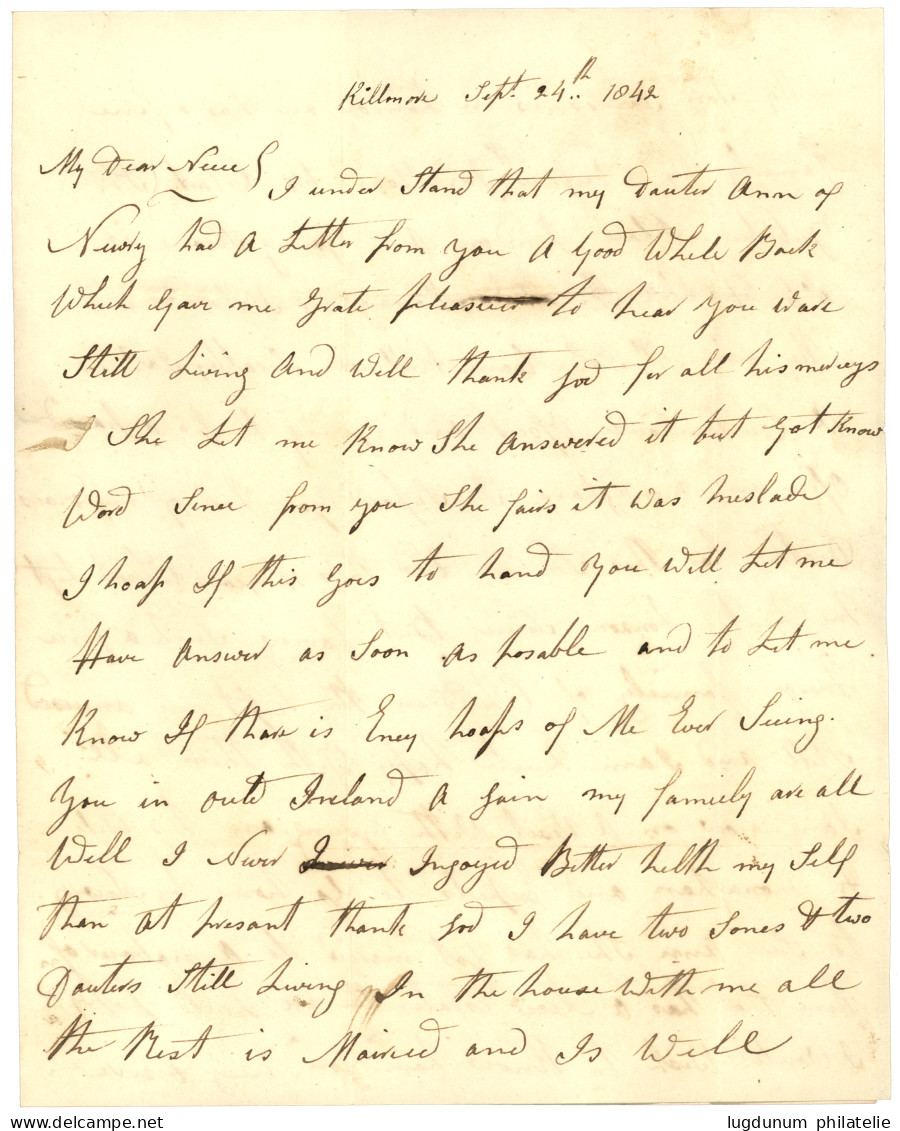 Killmore Sept. 24th 1842
My Dear Neice
I under Stand that my Dauter Ann of
Newry had A Letter from you A Good While Back
Which Gave me grate pleasure to hear You Ware
Still Living And Well thank god for all his mercys
I She Let me Know She Answered it but Got Know
Word Sence from you She fairs it was meslade
I hoap If this Goes to hand You Will Let me
Have Answer as Soon As posable and to Let me
Know If thare is Eney hoaps of Me Ever Seeing
You inould Ireland A gain my family are all
Well I Never Ingoyed Better helth my Self
than at presant thank god I have two Sones & two
Dauters Still Living In the house With me all
the Rest is Maired and Is Well
lugdunum philatelie